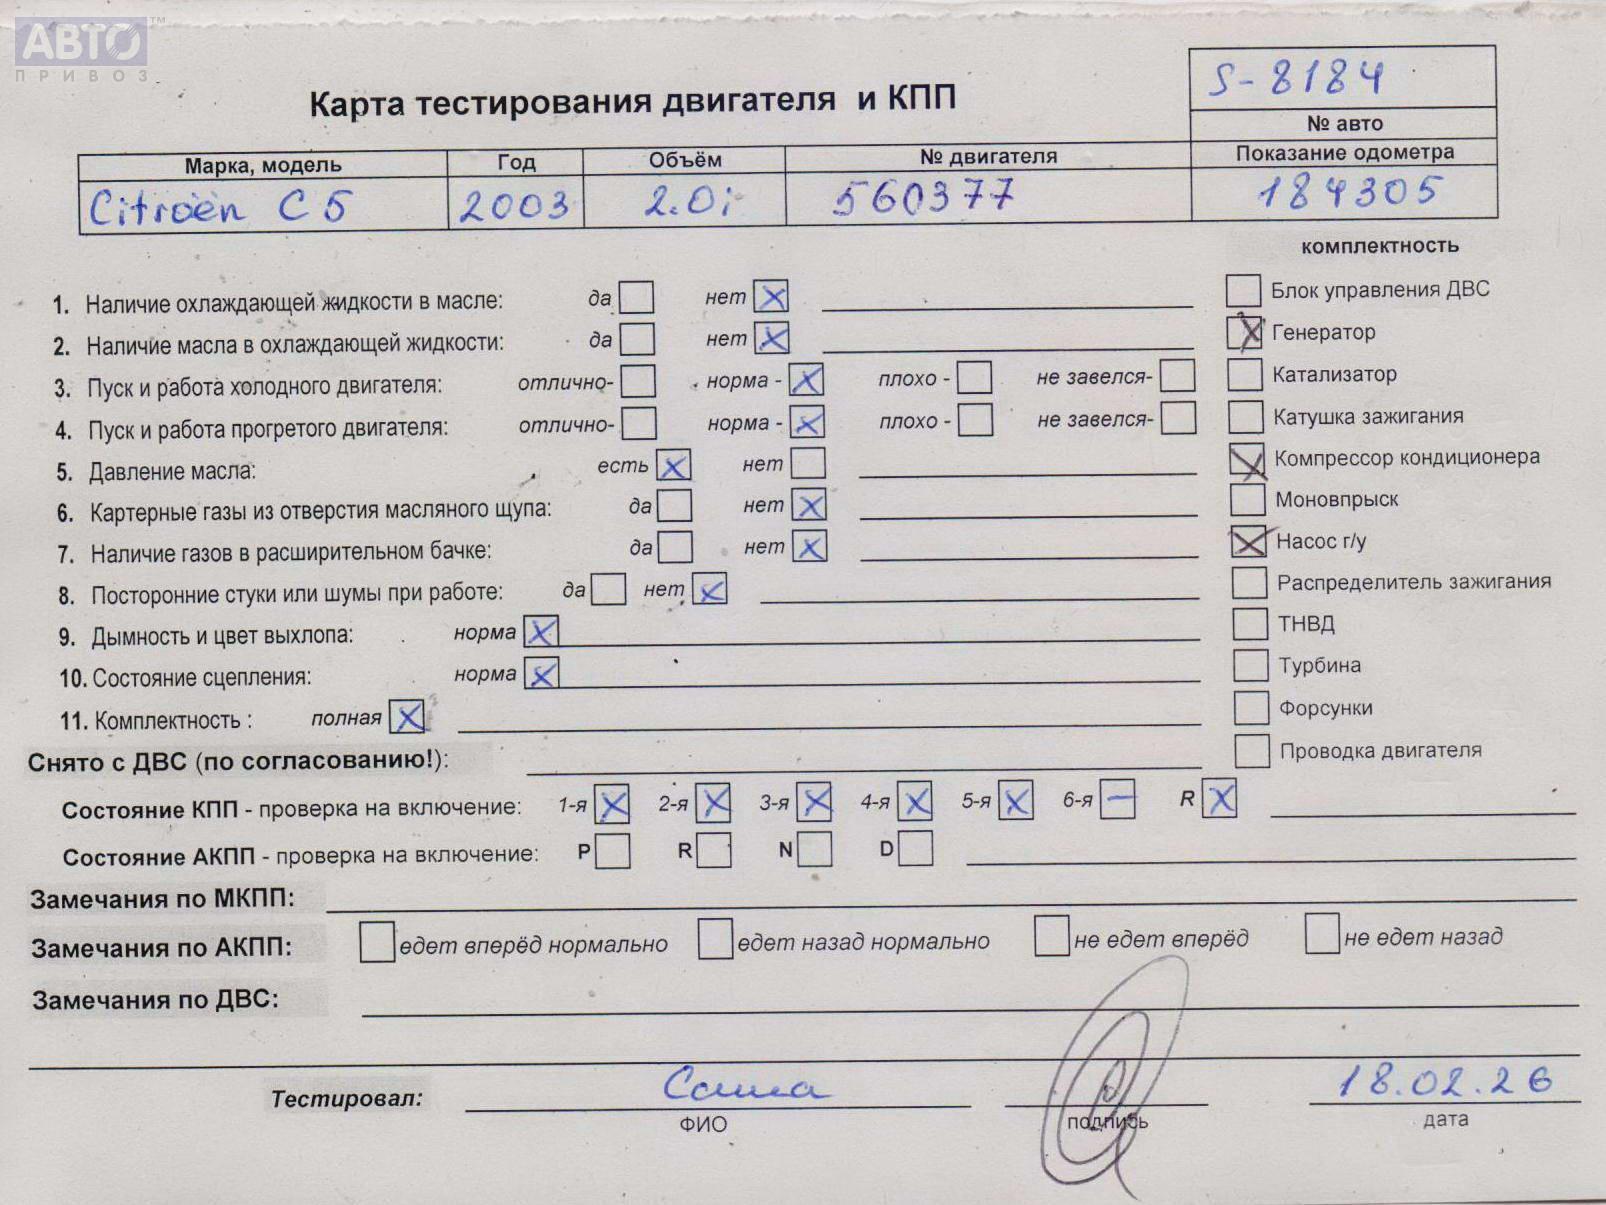 АВТО™
ПРИВОЗ
S-8184
Карта тестирования двигателя и КПП
№ авто
Марка, модель Год Объём № двигателя Показание одометра
Citroën C5 2003 2.0i 560377 184305
комплектность
1. Наличие охлаждающей жидкости в масле: да нет X
Блок управления ДВС
2. Наличие масла в охлаждающей жидкости: да нет X
X Генератор
3. Пуск и работа холодного двигателя: отлично- норма - X плохо - не завелся-
Катализатор
4. Пуск и работа прогретого двигателя: отлично- норма - X плохо - не завелся-
Катушка зажигания
5. Давление масла: есть X нет
X Компрессор кондиционера
6. Картерные газы из отверстия масляного щупа: да нет X
Моновпрыск
7. Наличие газов в расширительном бачке: да нет X
X Насос г/у
8. Посторонние стуки или шумы при работе: да нет X
Распределитель зажигания
9. Дымность и цвет выхлопа: норма X
ТНВД
10. Состояние сцепления: норма X
Турбина
11. Комплектность : полная X
Форсунки
Снято с ДВС (по согласованию!):
Проводка двигателя
Состояние КПП - проверка на включение: 1-я X 2-я X 3-я X 4-я X 5-я X 6-я – R X
Состояние АКПП - проверка на включение: P R N D
Замечания по МКПП:
Замечания по АКПП: едет вперёд нормально едет назад нормально не едет вперёд не едет назад
Замечания по ДВС:
Тестировал: Саша 18.02.26
ФИО подпись дата